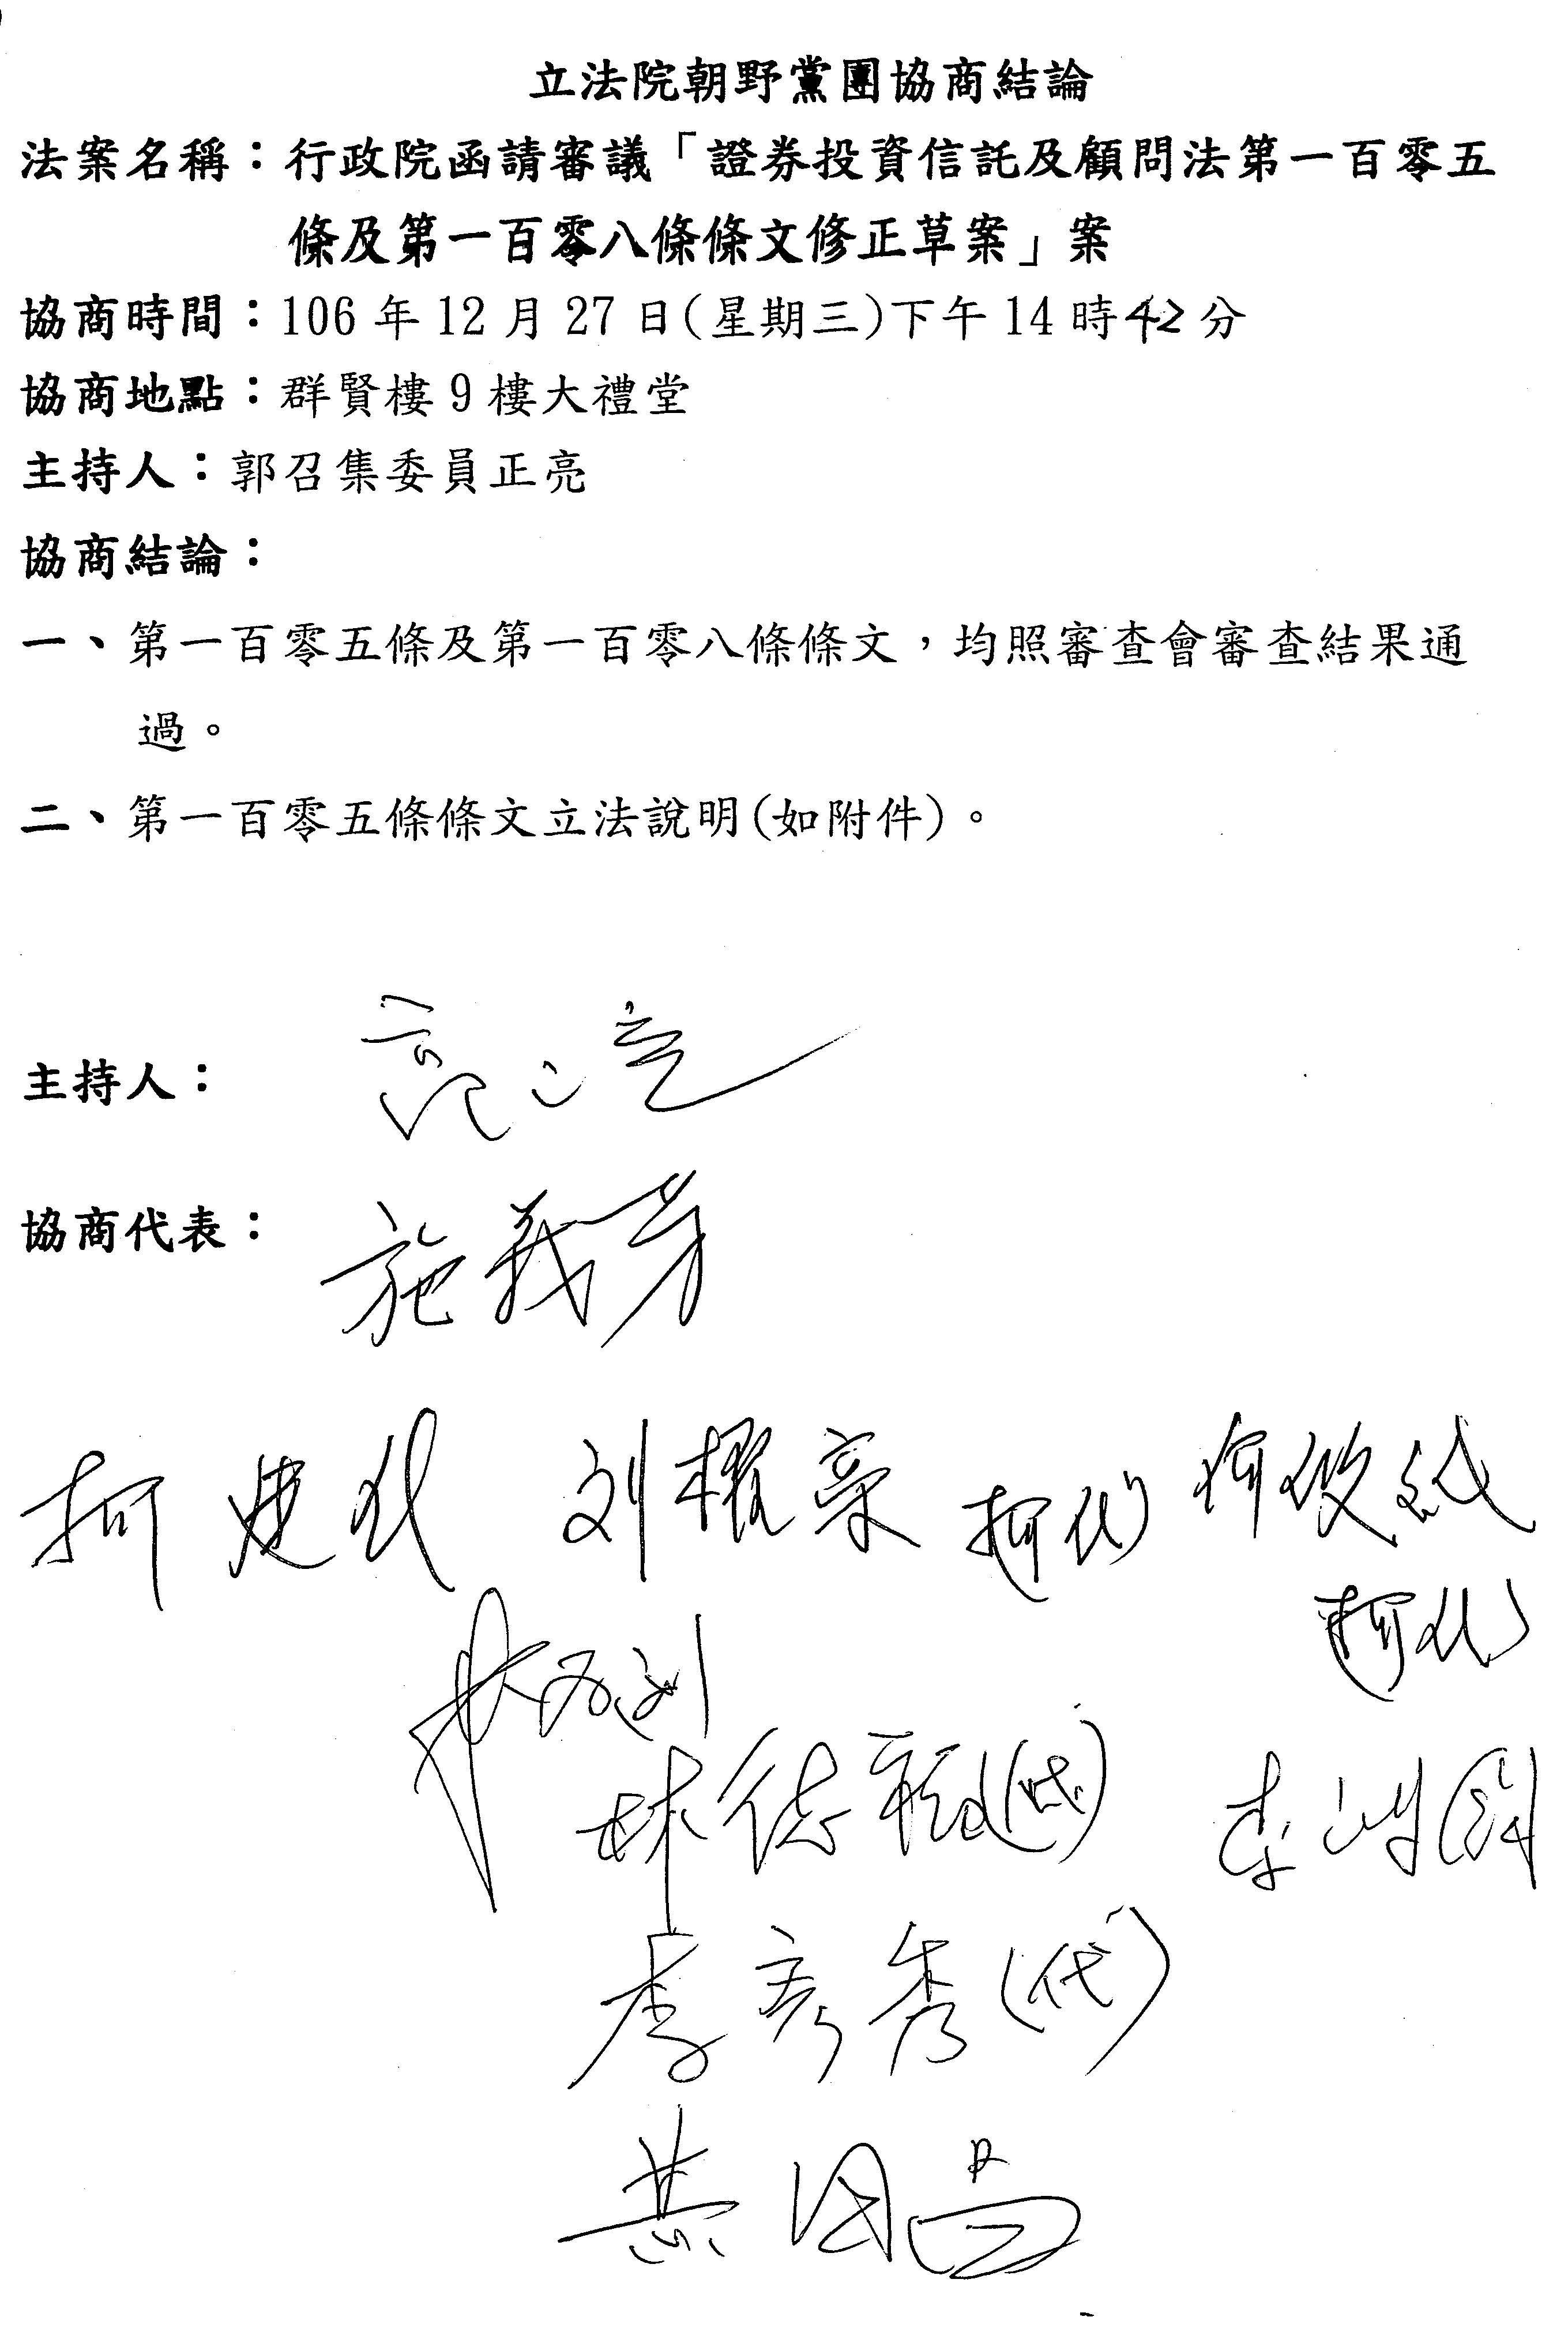 立法院朝野黨團協商結論
法案名稱：行政院函請審議「證券投資信託及顧問法第一百零五
條及第一百零八條條文修正草案」案
協商時間：106年12月27日(星期三)下午14時42分
協商地點：群賢樓9樓大禮堂
主持人：郭召集委員正亮
協商結論：
一、第一百零五條及第一百零八條條文，均照審查會審查結果通
過。
二、第一百零五條條文立法說明(如附件)。
主持人：
協商代表：施義芳
柯建 刘櫂豪 柯 何欣純
柯
林為洲
林德福(代) 李鴻鈞
李彥秀(代)
黃国昌